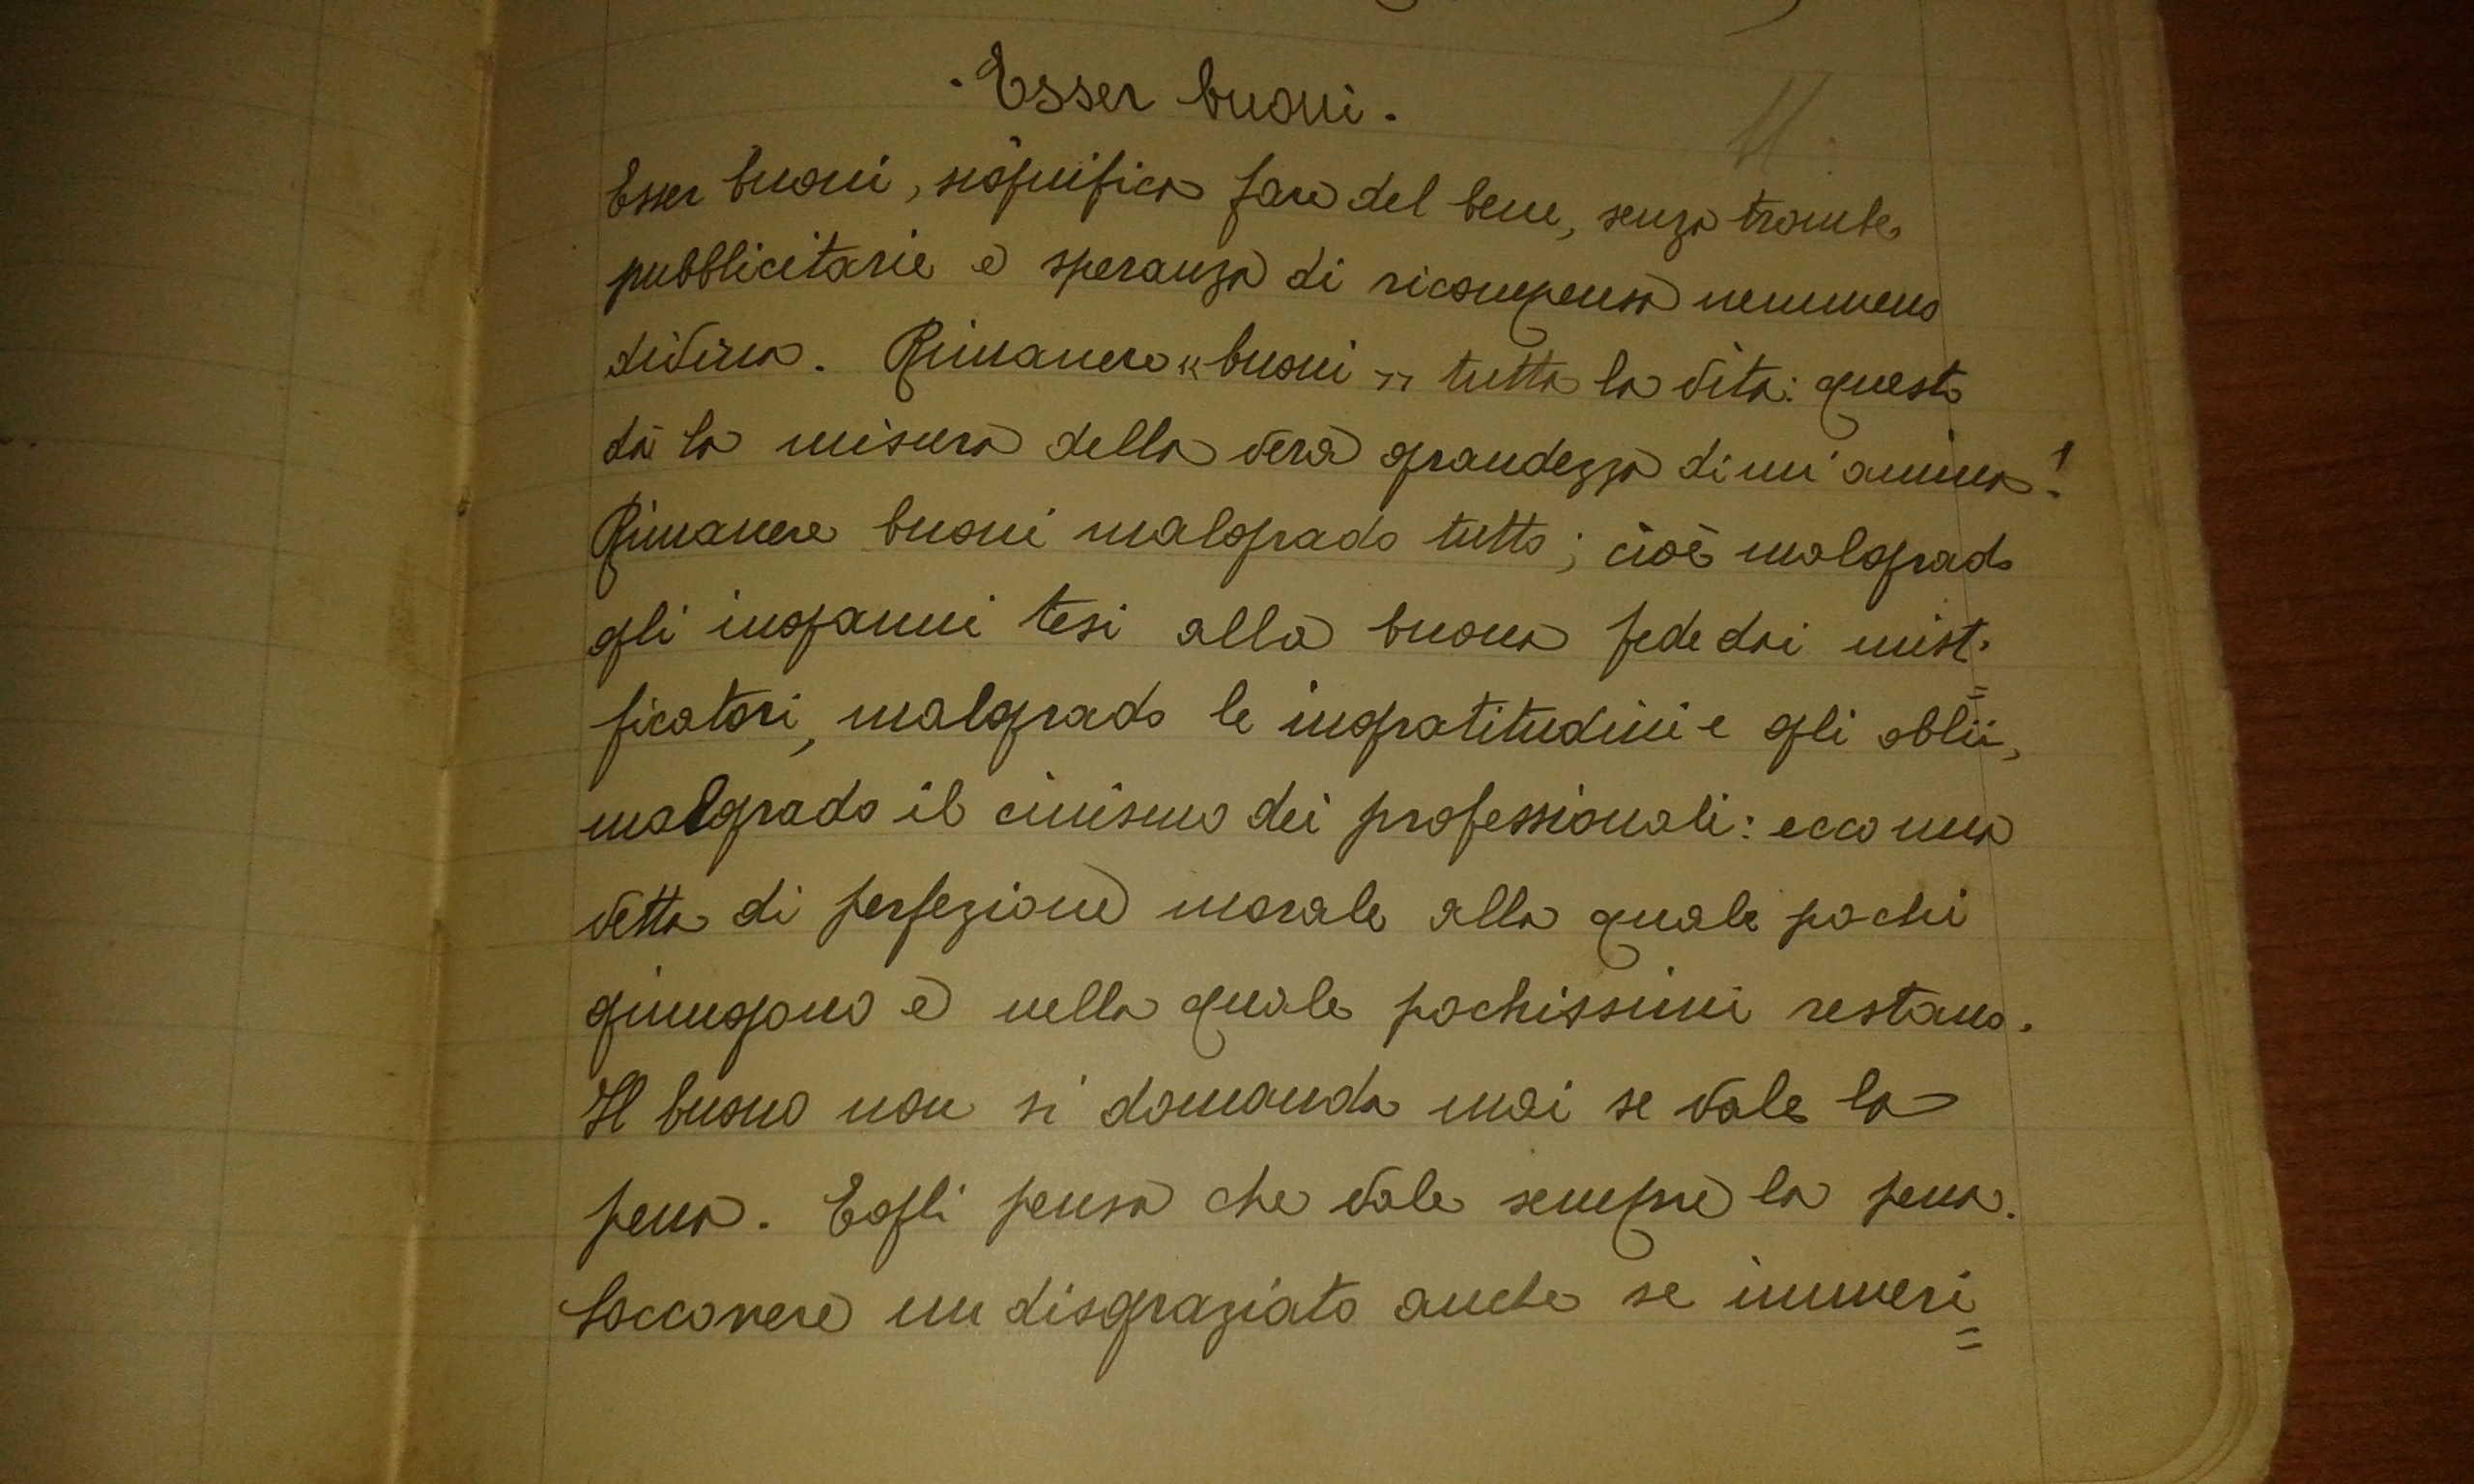 . Esser buoni .
Esser buoni, significa fare del bene, senza trombe
pubblicitarie e speranza di ricompensa nemmeno
divina. Rimanere « buoni » tutta la vita: questo
dà la misura della vera grandezza di un'anima!
Rimanere buoni malgrado tutto; cioè malgrado
gli inganni tesi alla buona fede dai misti=
ficatori, malgrado le ingratitudini e gli oblii,
malgrado il cinismo dei professionali: ecco una
vetta di perfezione morale alla quale pochi
giungono e nella quale pochissimi restano.
Il buono non si domanda mai se vale la
pena. Egli pensa che vale sempre la pena.
Soccorrere un disgraziato anche se immeri=